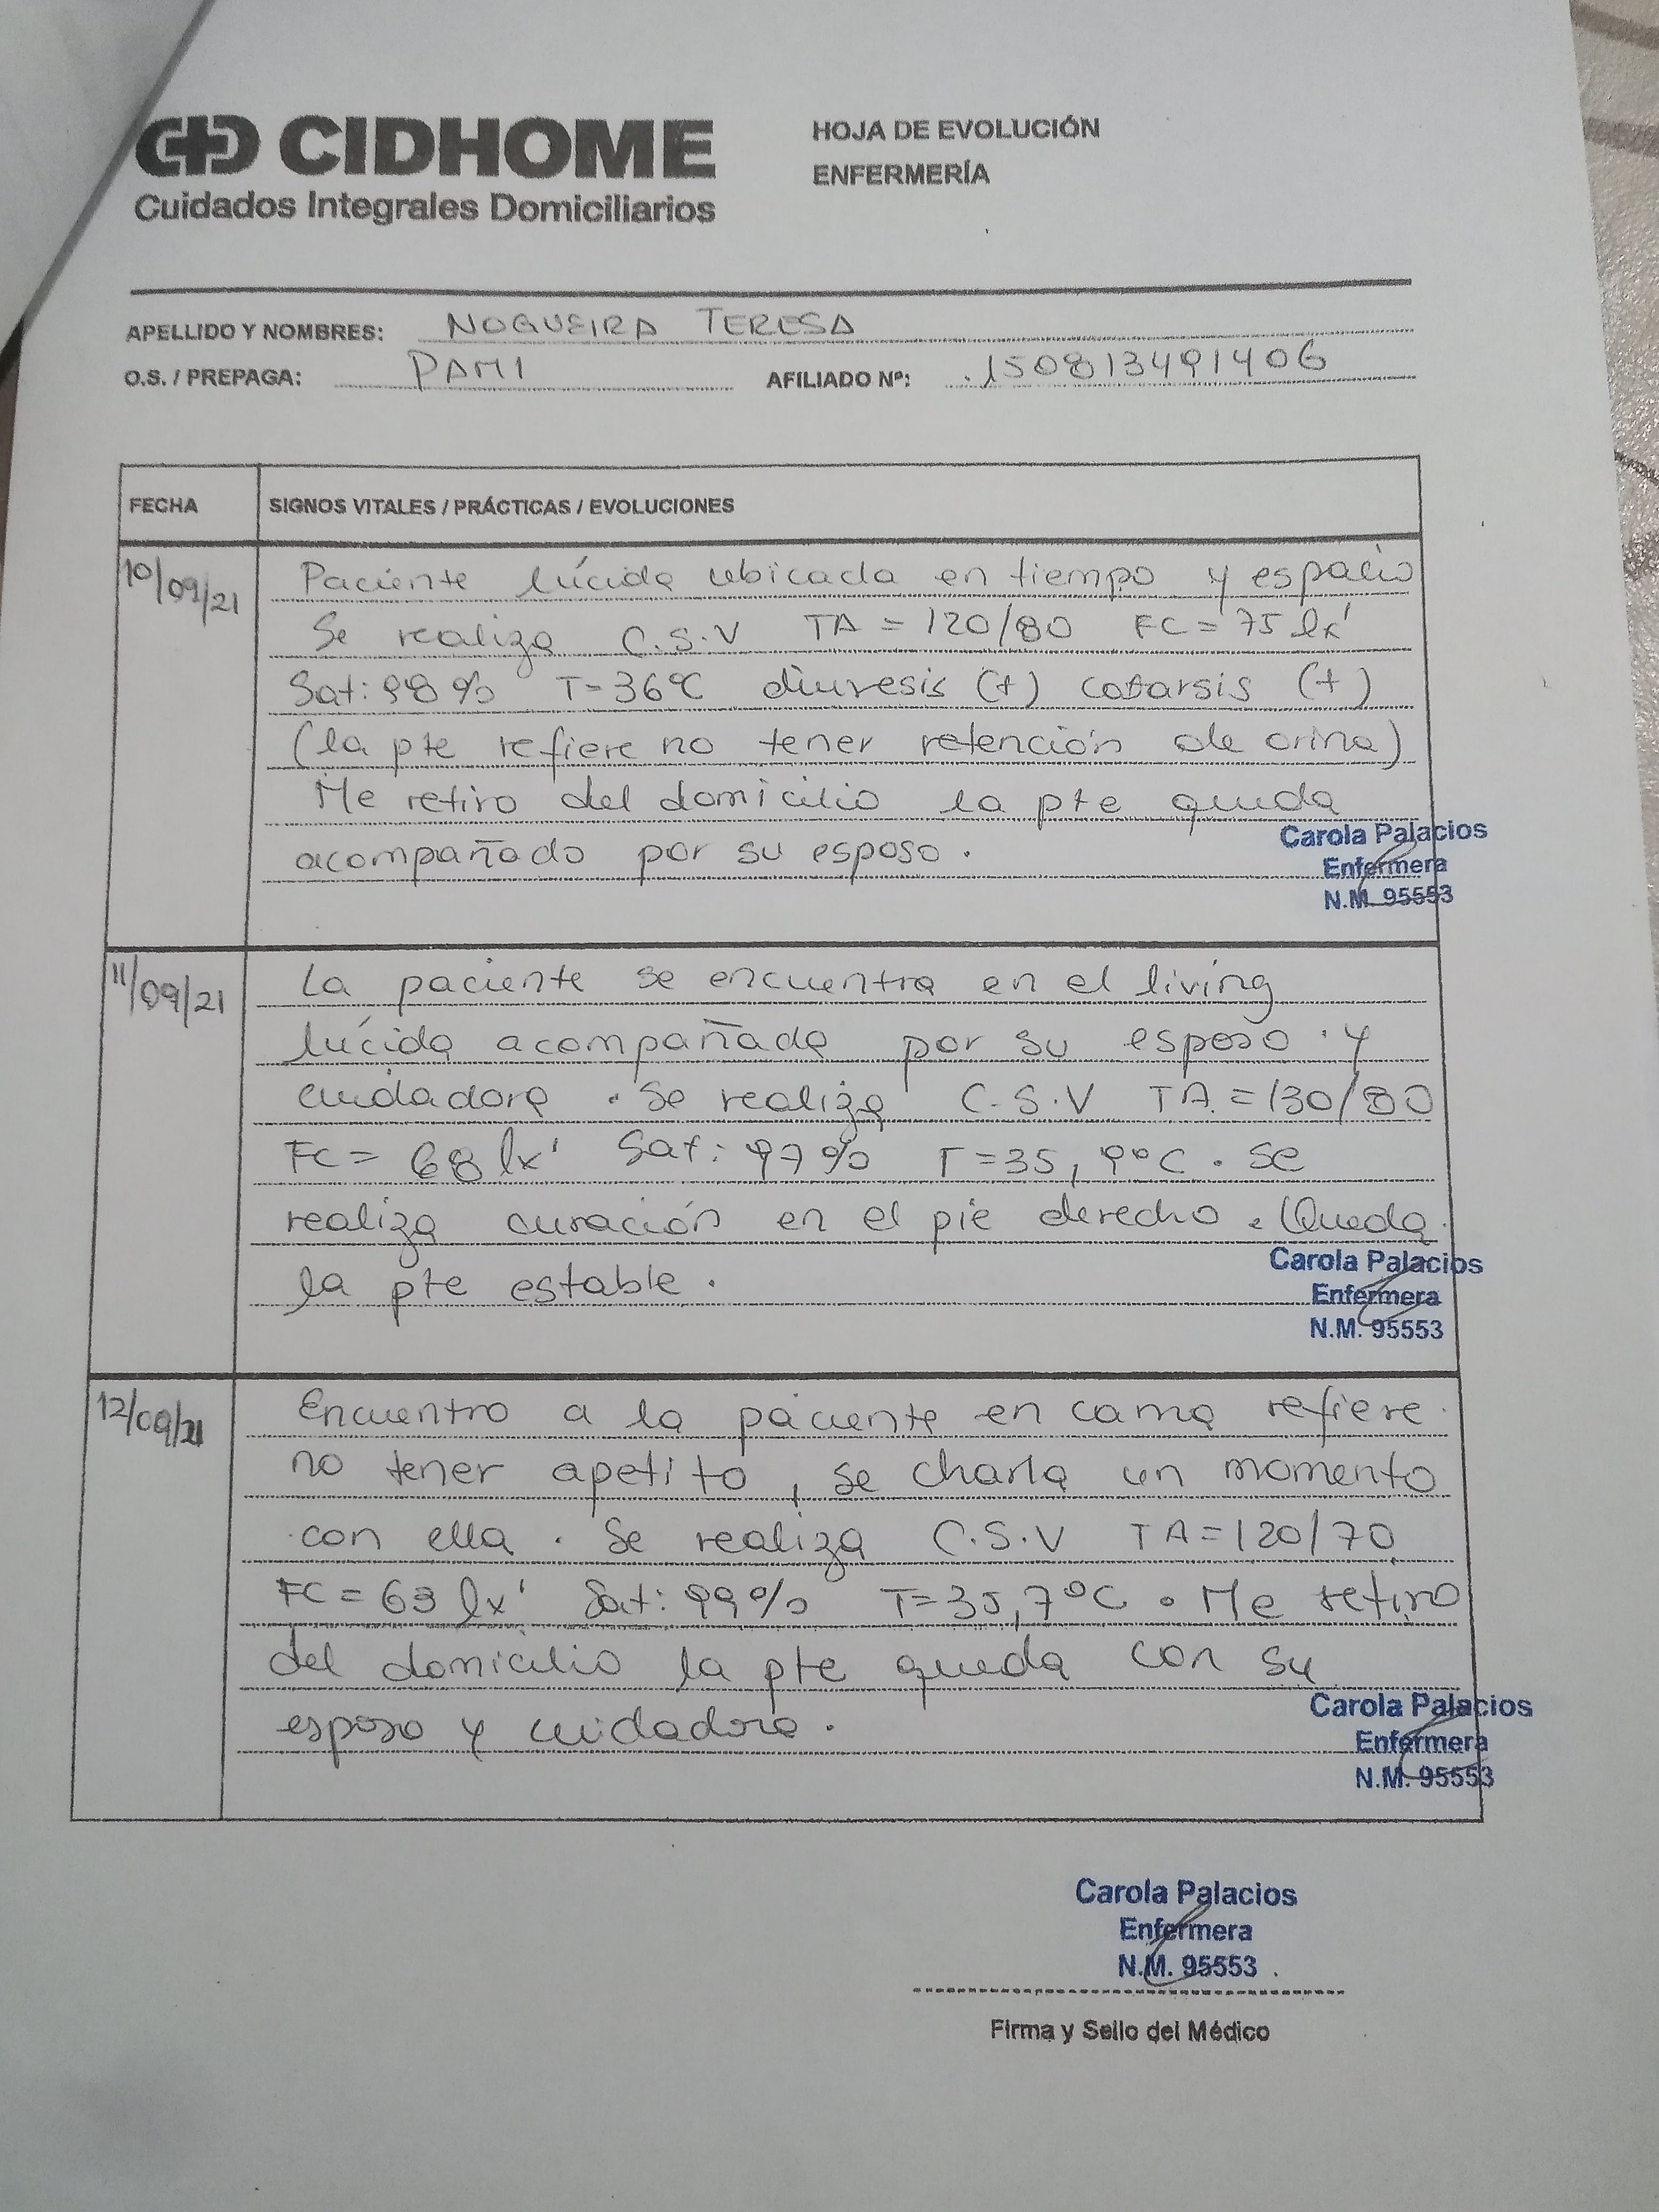 CIDHOME
Cuidados Integrales Domiciliarios
HOJA DE EVOLUCIÓN
ENFERMERÍA
APELLIDO Y NOMBRES: NOGUEIRA TERESA
O.S. / PREPAGA: PAMI AFILIADO Nº: 150813491406
FECHA SIGNOS VITALES / PRÁCTICAS / EVOLUCIONES
10/09/21 Paciente lúcida ubicada en tiempo y espacio
Se realiza C.S.V TA = 120/80 FC = 75 lx'
Sat: 98% T=36ºC diuresis (+) catarsis (+)
(la pte refiere no tener retención de orina)
Me retiro del domicilio la pte queda
acompañado por su esposo.
Carola Palacios
Enfermera
N.M. 95553
11/09/21 La paciente se encuentra en el living
lúcida acompañada por su esposo y
cuidadora. Se realiza C.S.V TA = 130/80
FC = 68 lx' Sat: 97% T=35,9ºC. Se
realiza curación en el pie derecho. Queda
la pte estable.
Carola Palacios
Enfermera
N.M. 95553
12/09/21 Encuentro a la paciente en cama refiere
no tener apetito, se charla un momento
con ella. Se realiza C.S.V TA=120/70
FC = 63 lx' Sat: 99% T=35,7ºC. Me retiro
del domicilio la pte queda con su
esposo y cuidadora.
Carola Palacios
Enfermera
N.M. 95553
Carola Palacios
Enfermera
N.M. 95553
Firma y Sello del Médico